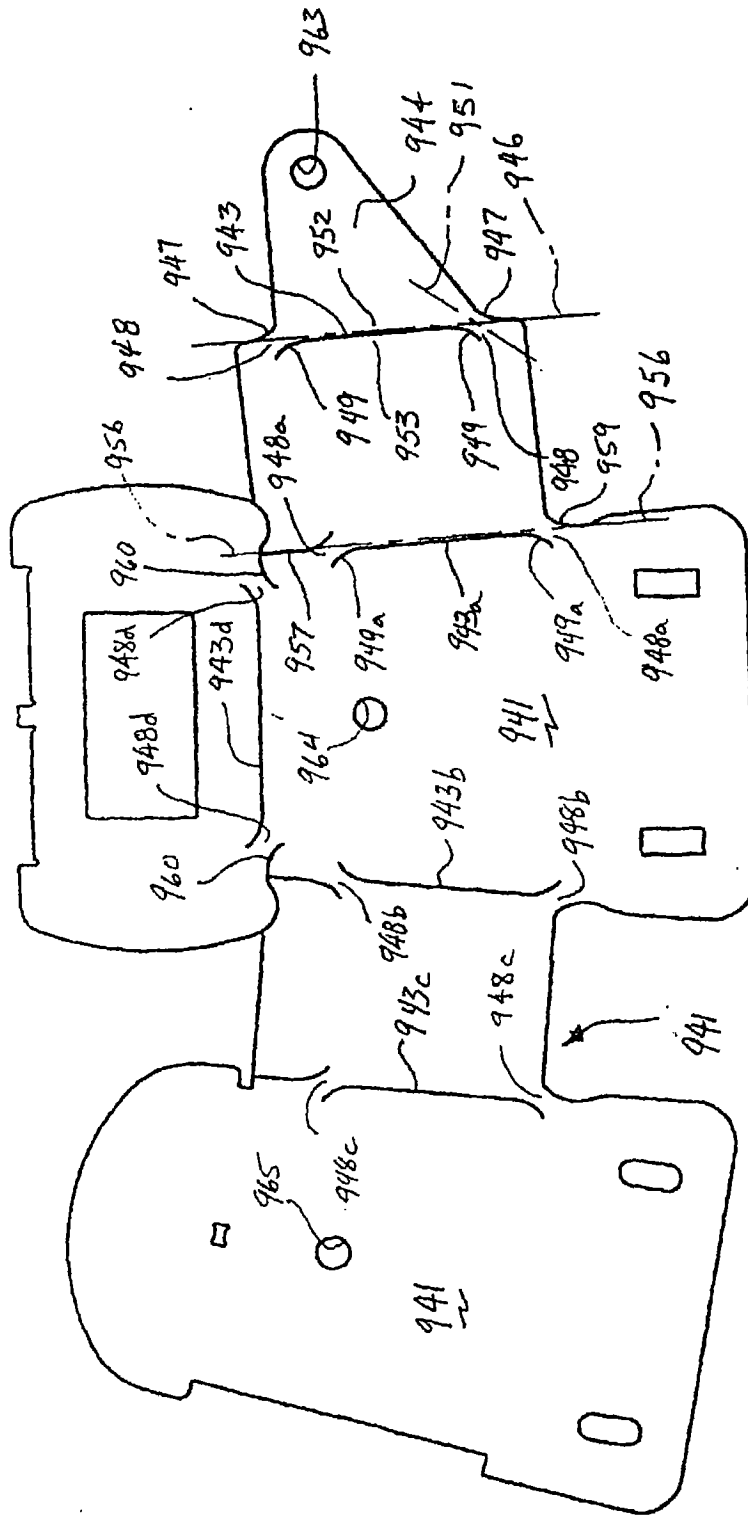 963
944
951
946
952
943
947
948
947
949
953
949
948
959
956
956
948a
960
957
949a
943a
949a
948a
948d
943d
948d
964
941
943b
960
948b
948b
943c
948c
941
948c
965
941